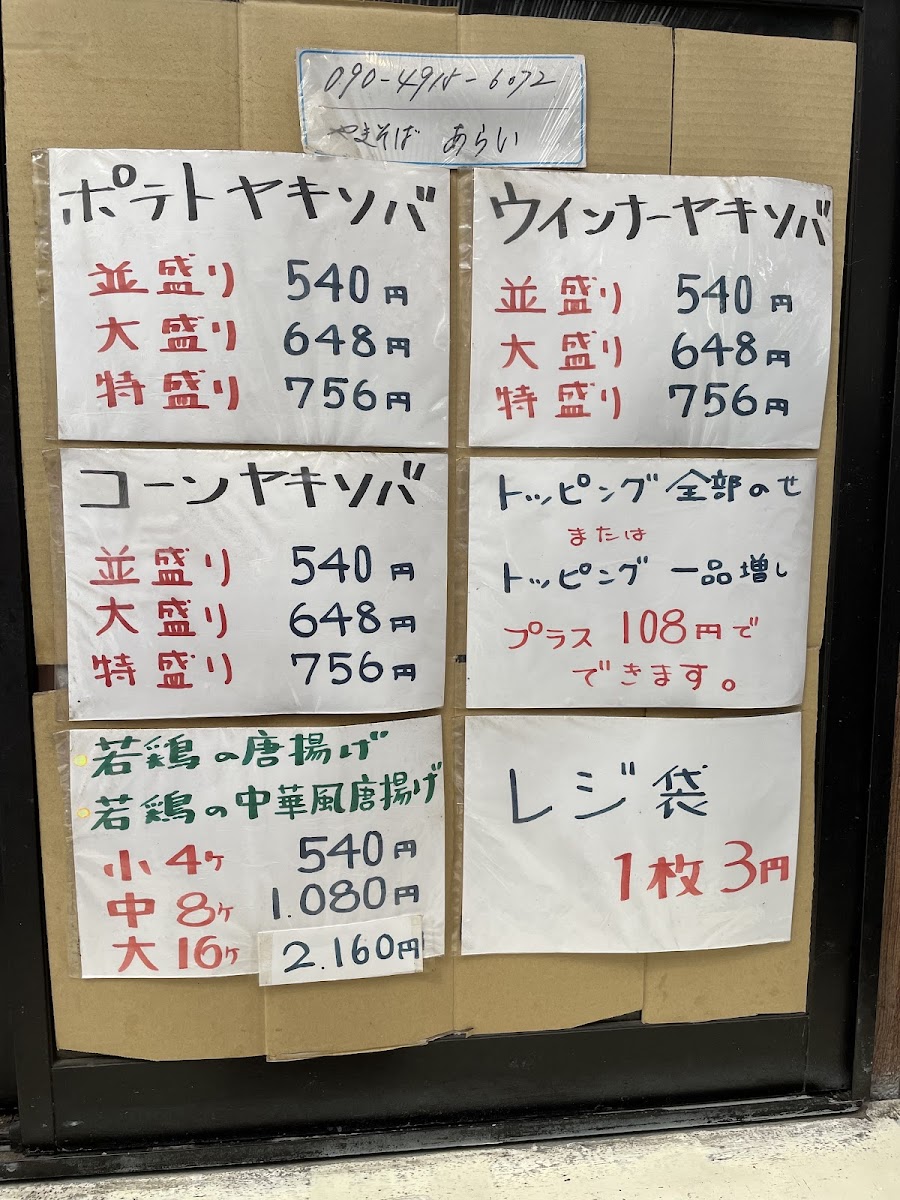 090-4915-6072
やきそば あらい
ポテトヤキソバ
並盛り 540円
大盛り 648円
特盛り 756円
ウインナーヤキソバ
並盛り 540円
大盛り 648円
特盛り 756円
コーンヤキソバ
並盛り 540円
大盛り 648円
特盛り 756円
トッピング全部のせ
または
トッピング 一品増し
プラス 108円で
できます。
若鶏の唐揚げ
若鶏の中華風唐揚げ
小 4ヶ 540円
中 8ヶ 1.080円
大 16ヶ 2.160円
レジ袋
1枚3円